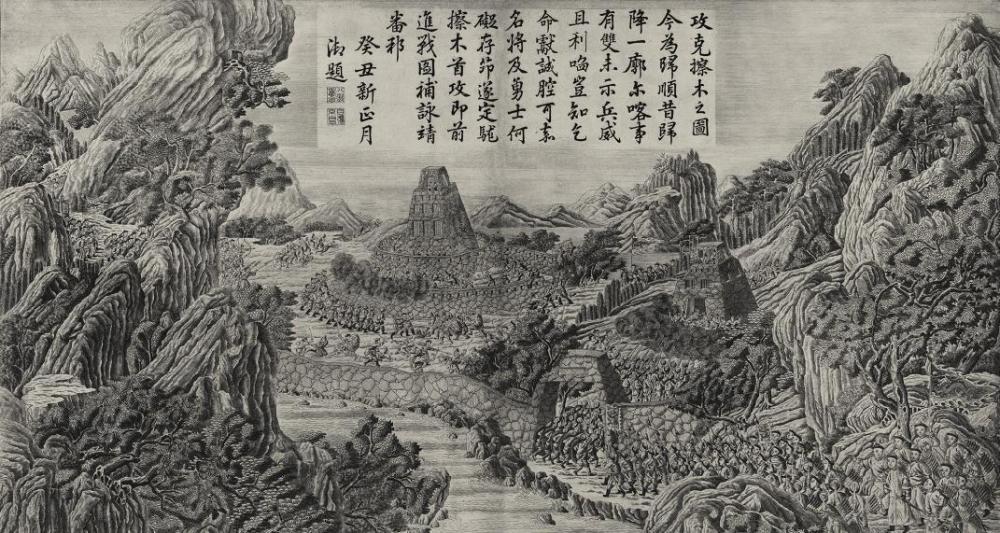 攻克擦木之圖
今為歸順昔歸
降一廓尒喀事
有雙未示兵威
且利啗豈知乞
命獻誠腔可素
名將及勇士何
礙存茆遂定駹
擦木首攻即前
進戰圖補詠靖
番邦
癸丑新正月
御題